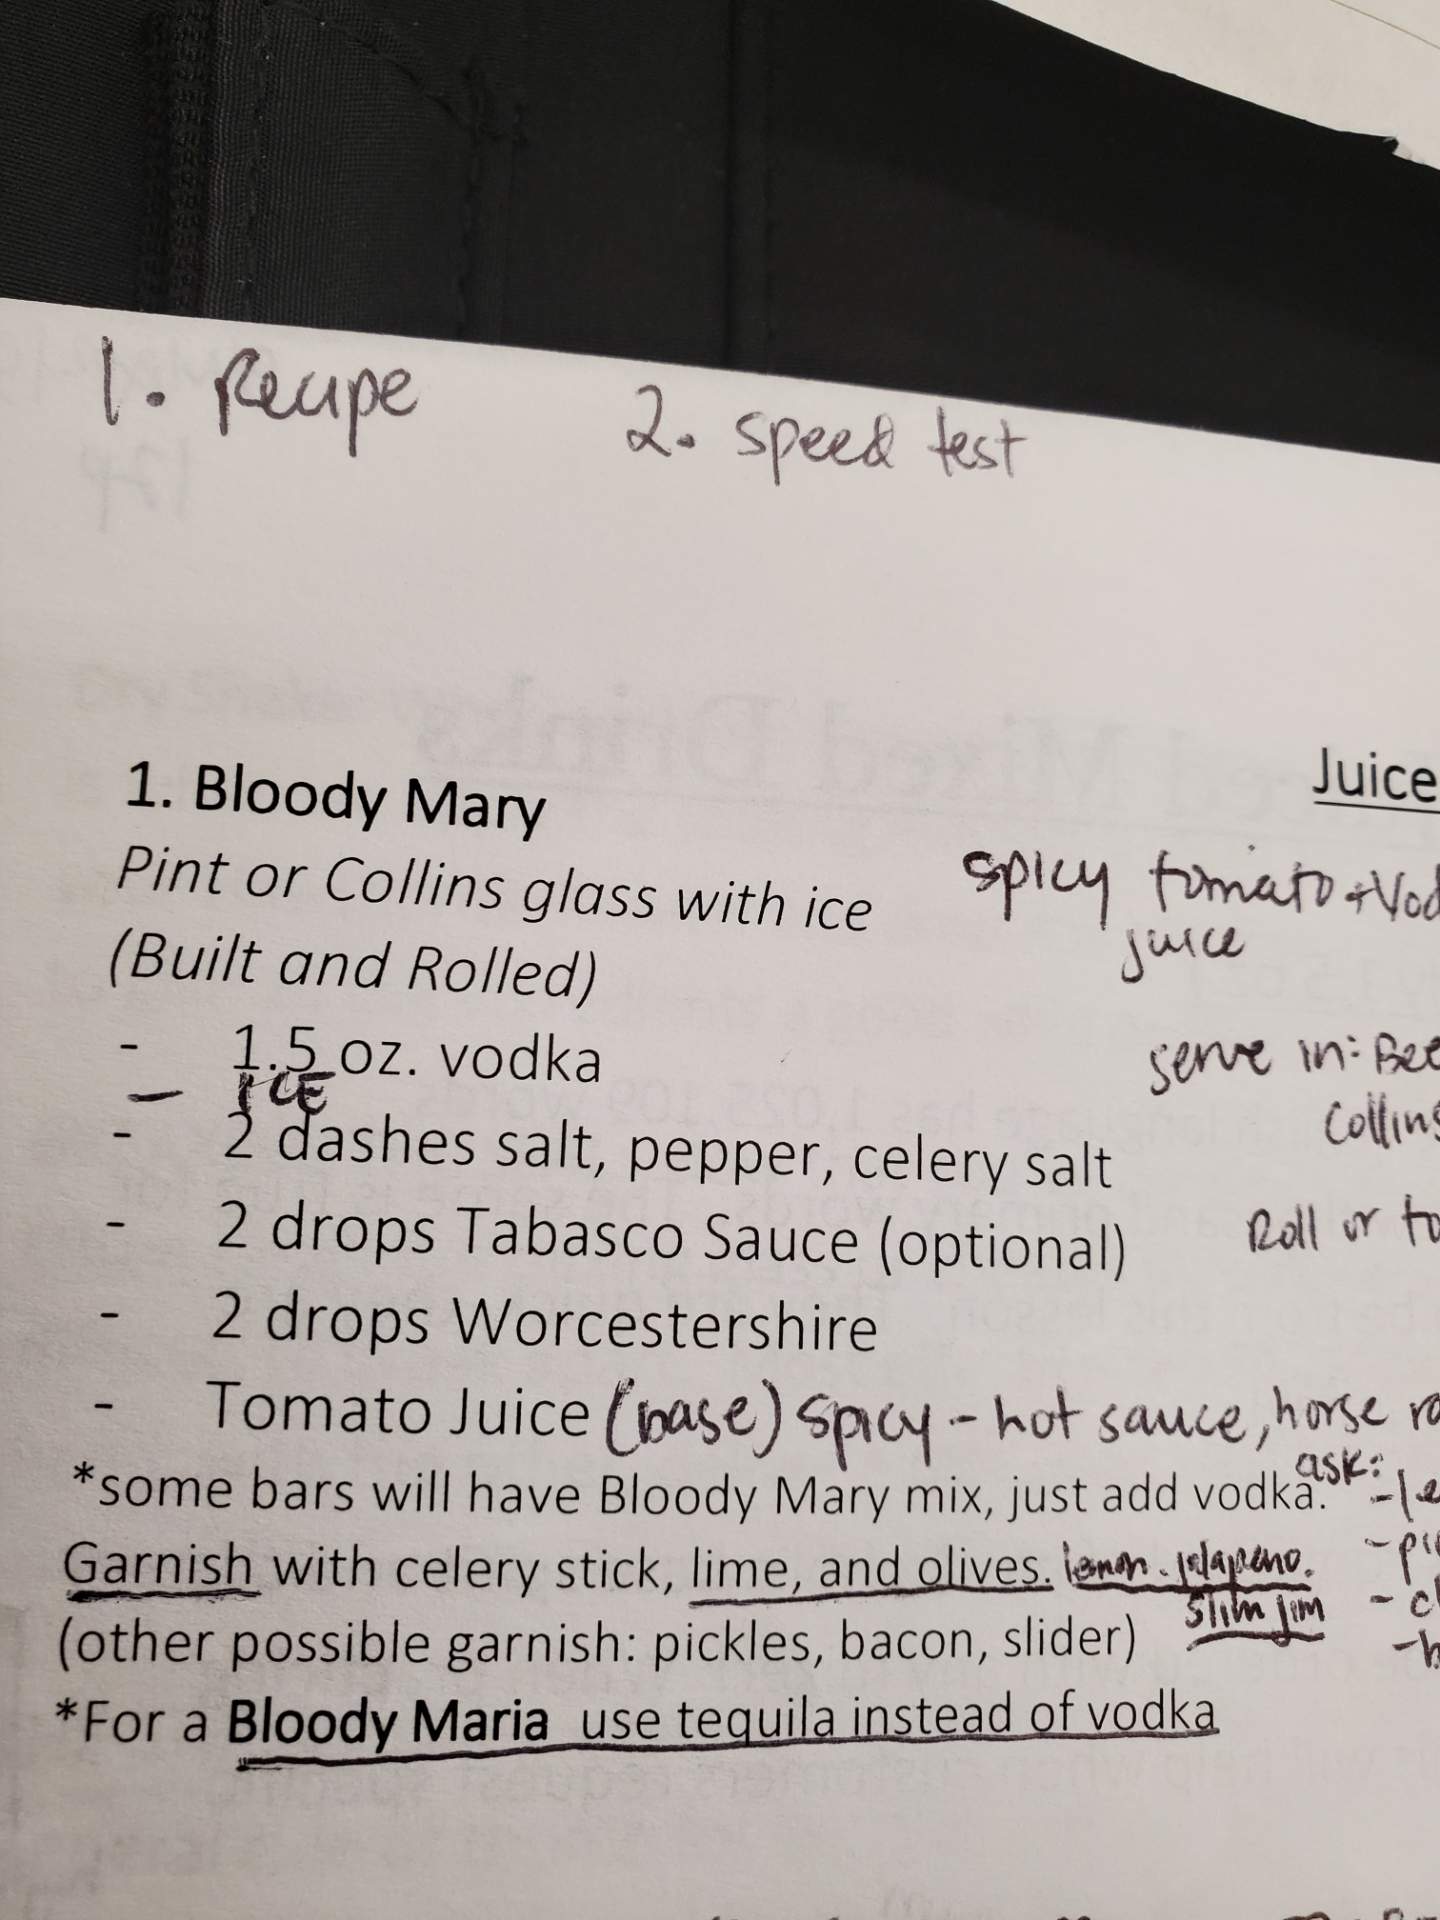 1. Recipe
2. speed test
1. Bloody Mary
Juice
Pint or Collins glass with ice
spicy tomato + Vod
juice
(Built and Rolled)
- 1.5 oz. vodka
serve in: Bee
- ICE
Collins
- 2 dashes salt, pepper, celery salt
- 2 drops Tabasco Sauce (optional)
Roll or to
- 2 drops Worcestershire
- Tomato Juice (base) spicy - hot sauce, horse ra
*some bars will have Bloody Mary mix, just add vodka. ask: - le
Garnish with celery stick, lime, and olives. lemon. jalapeno. - pi
slim jim - cl
(other possible garnish: pickles, bacon, slider) - b
*For a Bloody Maria use tequila instead of vodka